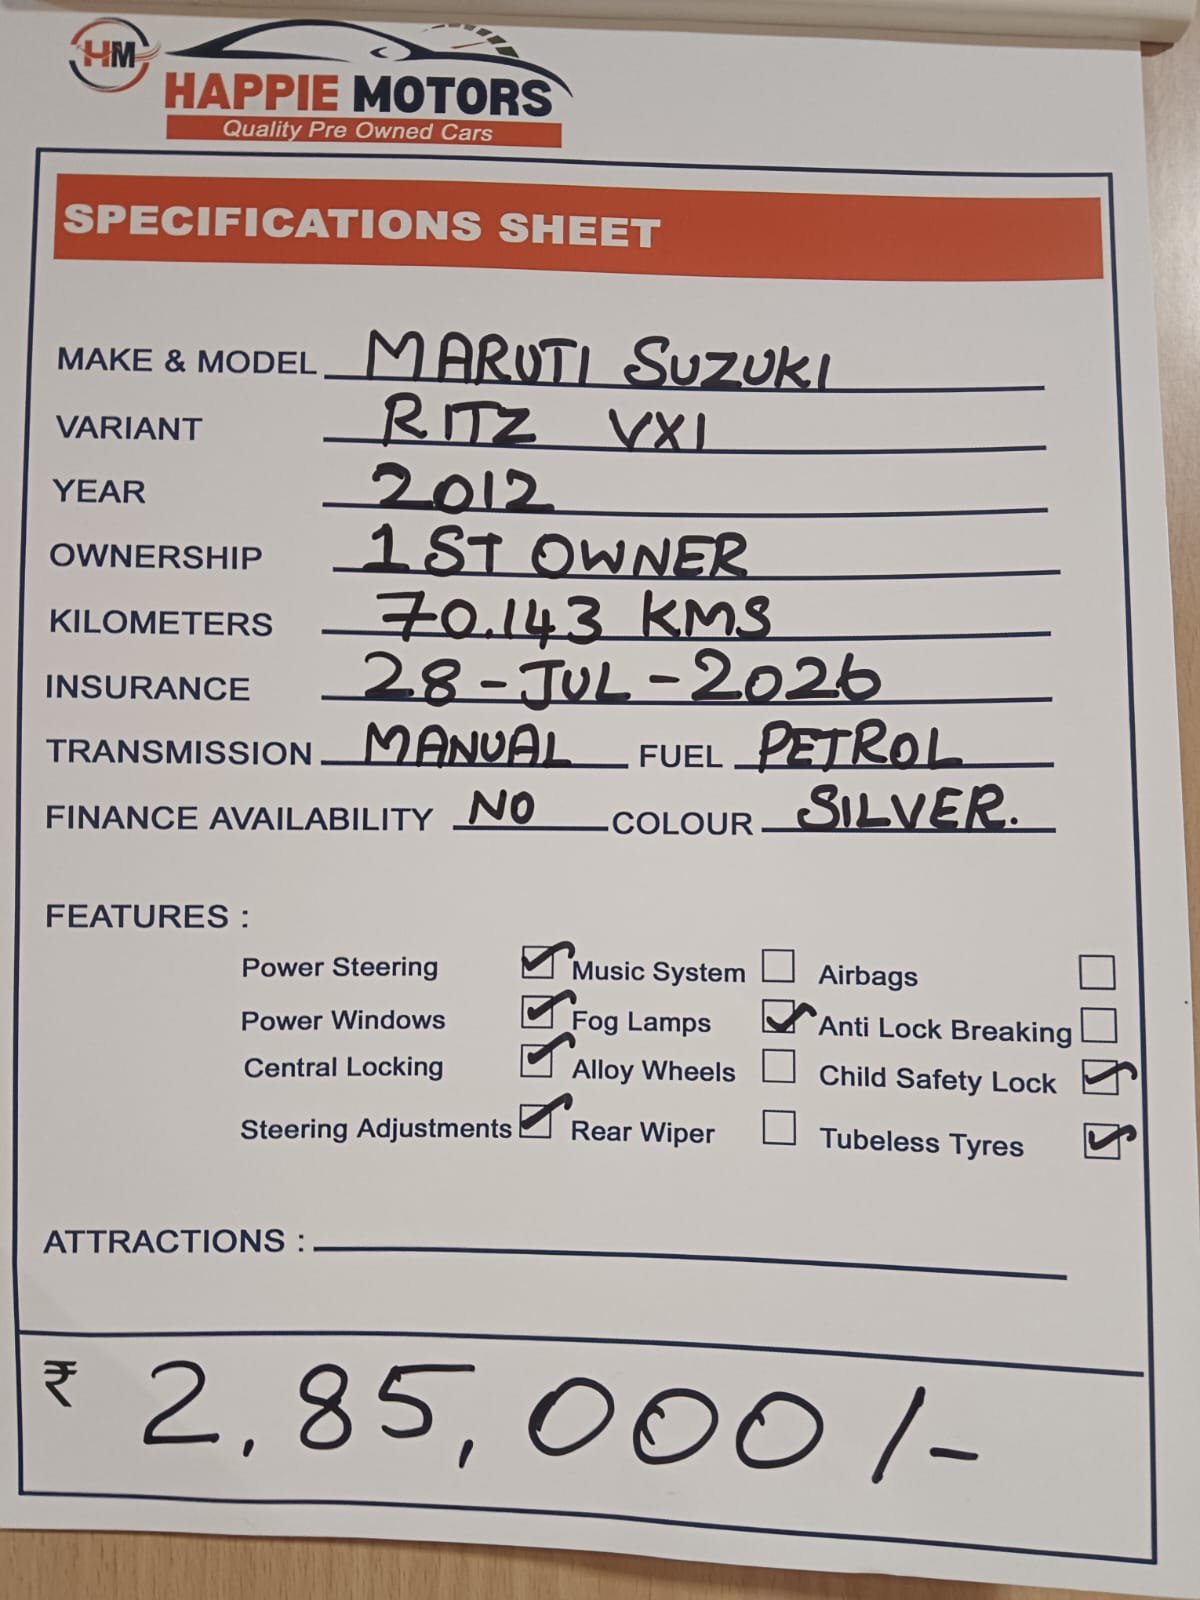 HM
HAPPIE MOTORS
Quality Pre Owned Cars
SPECIFICATIONS SHEET
MAKE & MODEL MARUTI SUZUKI
VARIANT RITZ VXI
YEAR 2012
OWNERSHIP 1ST OWNER
KILOMETERS 70.143 KMS
INSURANCE 28-JUL-2026
TRANSMISSION MANUAL FUEL PETROL
FINANCE AVAILABILITY NO COLOUR SILVER.
FEATURES :
Power Steering Music System Airbags
Power Windows Fog Lamps Anti Lock Breaking
Central Locking Alloy Wheels Child Safety Lock
Steering Adjustments Rear Wiper Tubeless Tyres
ATTRACTIONS :
₹ 2,85,000/-